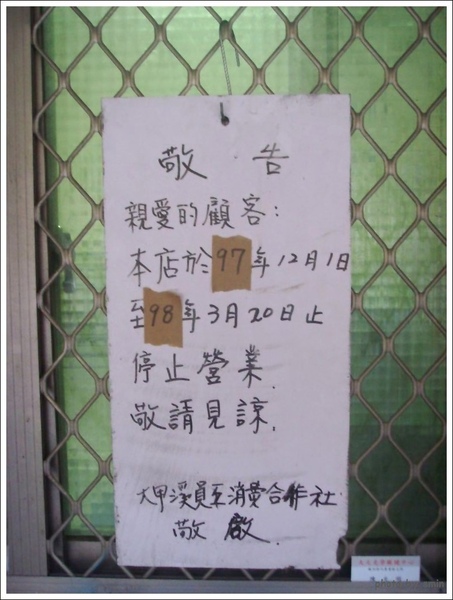 敬告
親愛的顧客:
本店於97年12月1日
至98年3月20日止
停止營業.
敬請見諒.
大甲溪員工消費合作社
敬啟.